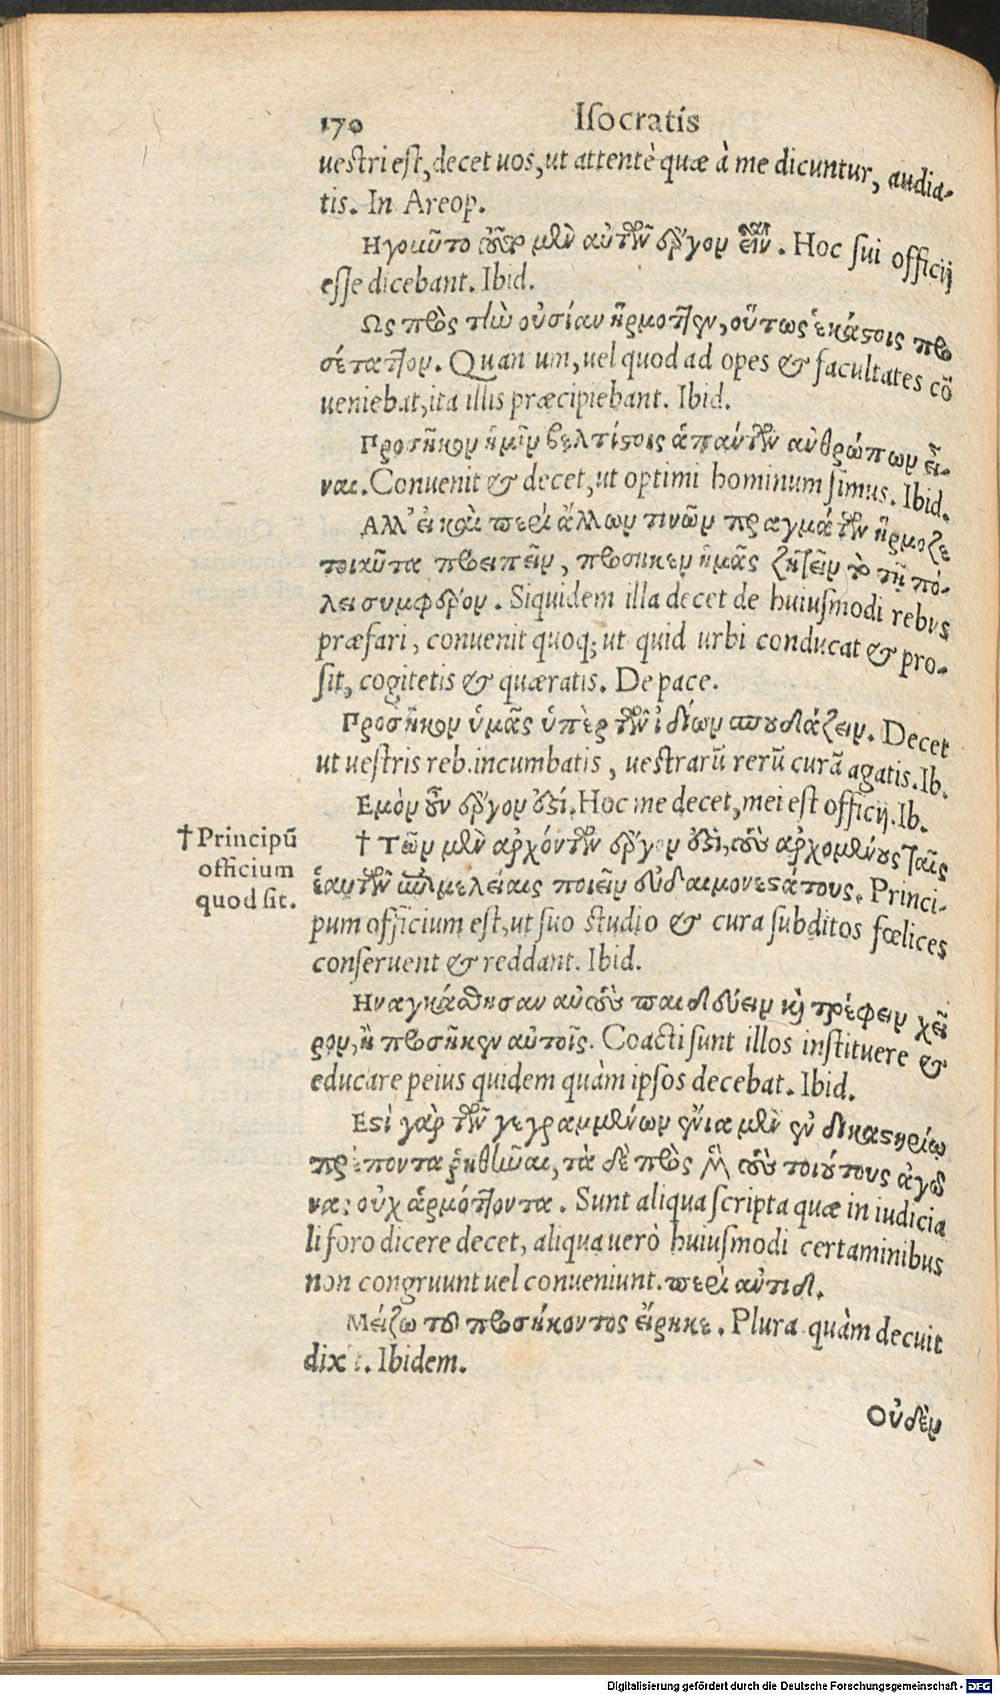 170 Isocratis
vestri est, decet vos, ut attentè quæ à me dicuntur, audia-
tis. In Areop.
Ηγοιῦτο μὲν αὐτῶν ἔργον εἶναι. Hoc sui officij
esse dicebant. Ibid.
Ως πρὸς τὴν οὐσίαν ἥρμοττεν, οὕτως ἑκάστοις προ
σέταττον. Quan um, vel quod ad opes & facultates cō
veniebat, ita illis præcipiebant. Ibid.
Προσῆκον ἡμῖν βελτίστοις ἁπάντων ἀνθρώπων εἶ-
ναι. Convenit & decet, ut optimi hominum simus. Ibid.
Αλλ' εἰ καὶ περὶ ἄλλων τινῶν πραγμάτων ἥρμοζε
τοιαῦτα προειπεῖν, προσῆκεν ἡμᾶς ζητεῖν τὸ τῇ πό-
λει συμφέρον. Siquidem illa decet de huiusmodi rebus
præfari, convenit quoq; ut quid urbi conducat & pro-
sit, cogitetis & quæratis. De pace.
Προσῆκον ὑμᾶς ὑπὲρ τῶν ἰδίων σπουδάζειν. Decet
ut vestris reb. incumbatis, vestrarū rerū curā agatis. Ib.
Εμὸν οὖν ἔργον ἐστί. Hoc me decet, mei est officij. Ib.
† Τῶν μὲν ἀρχόντων ἔργον ἐστὶ, τοὺς ἀρχομένους ταῖς
ἑαυτῶν ἐπιμελείαις ποιεῖν εὐδαιμονεστάτους. Princi-
pum officium est, ut suo studio & cura subditos fœlices
conservent & reddant. Ibid.
† Principū
officium
quod sit.
Ηναγκάσθησαν αὐτοὺς παιδεύειν καὶ τρέφειν χεῖ
ρον, ἢ προσῆκεν αὐτοῖς. Coacti sunt illos instituere &
educare peius quidem quàm ipsos decebat. Ibid.
Εστὶ γὰρ τῶν γεγραμμένων ἔνια μὲν ἐν δικαστηρίῳ
πρέποντα ῥηθῆναι, τὰ δὲ πρὸς μὲν τοὺς τοιούτους ἀγῶ
νας οὐχ ἁρμόττοντα. Sunt aliqua scripta quæ in iudicia
li foro dicere decet, aliqua verò huiusmodi certaminibus
non congruunt vel conveniunt. περὶ αὐτιδ.
Μείζω τοῦ προσήκοντος εἴρηκε. Plura quàm decuit
dix t. Ibidem.
Οὐδὲν
Digitalisierung gefördert durch die Deutsche Forschungsgemeinschaft - DFG